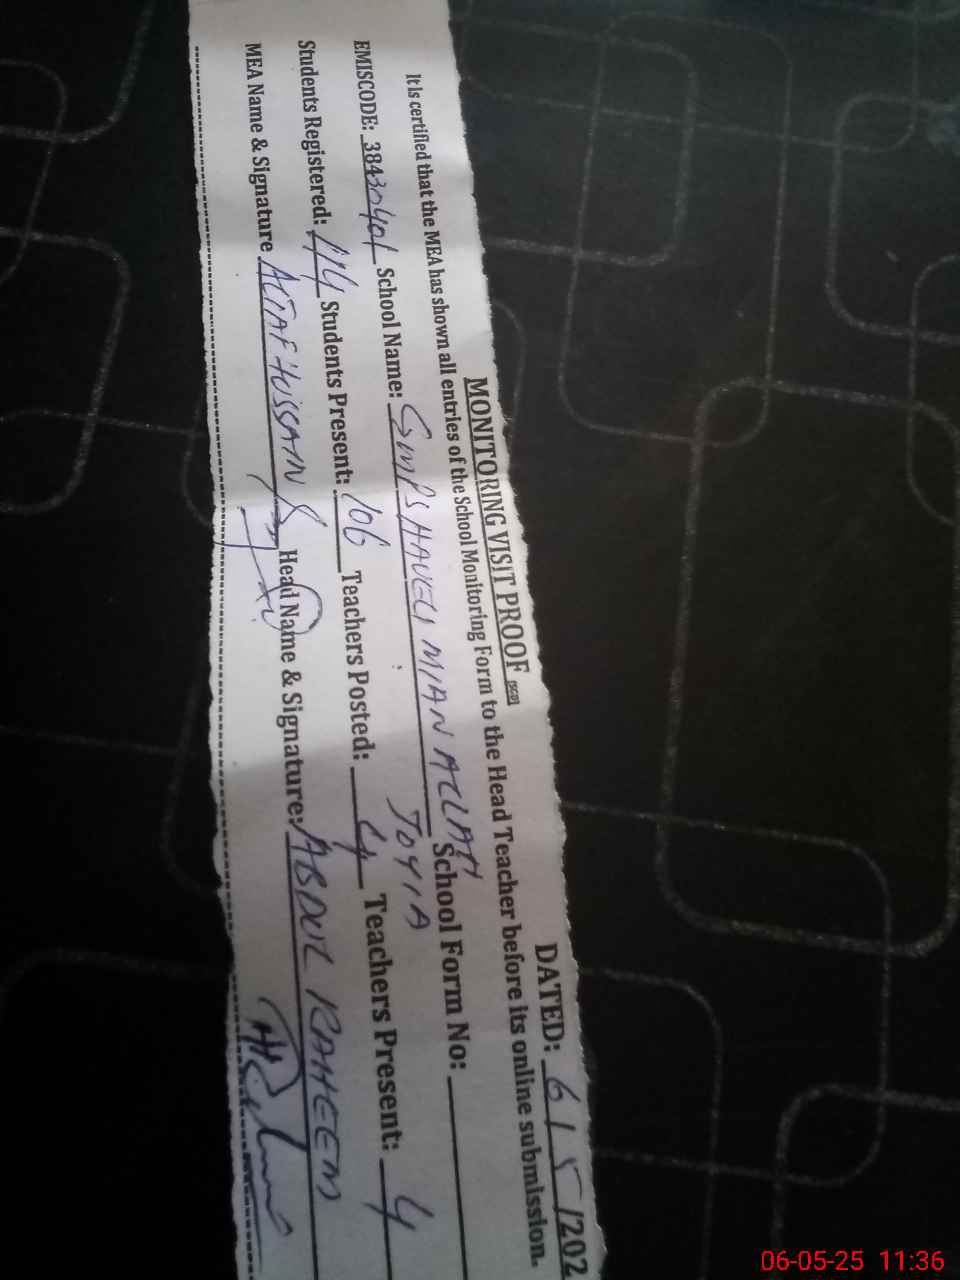 MONITORING VISIT PROOF (SCD)
DATED: 6/5/202
It is certified that the MEA has shown all entries of the School Monitoring Form to the Head Teacher before its online submission.
EMISCODE: 38430401 School Name: GMPS HAVELI MIAN ALLAH JOYIA School Form No:
Students Registered: 114 Students Present: 106 Teachers Posted: 4 Teachers Present: 4
MEA Name & Signature ALTAF HUSSAIN Head Name & Signature: ABDUL RAHEEM
06-05-25 11:36